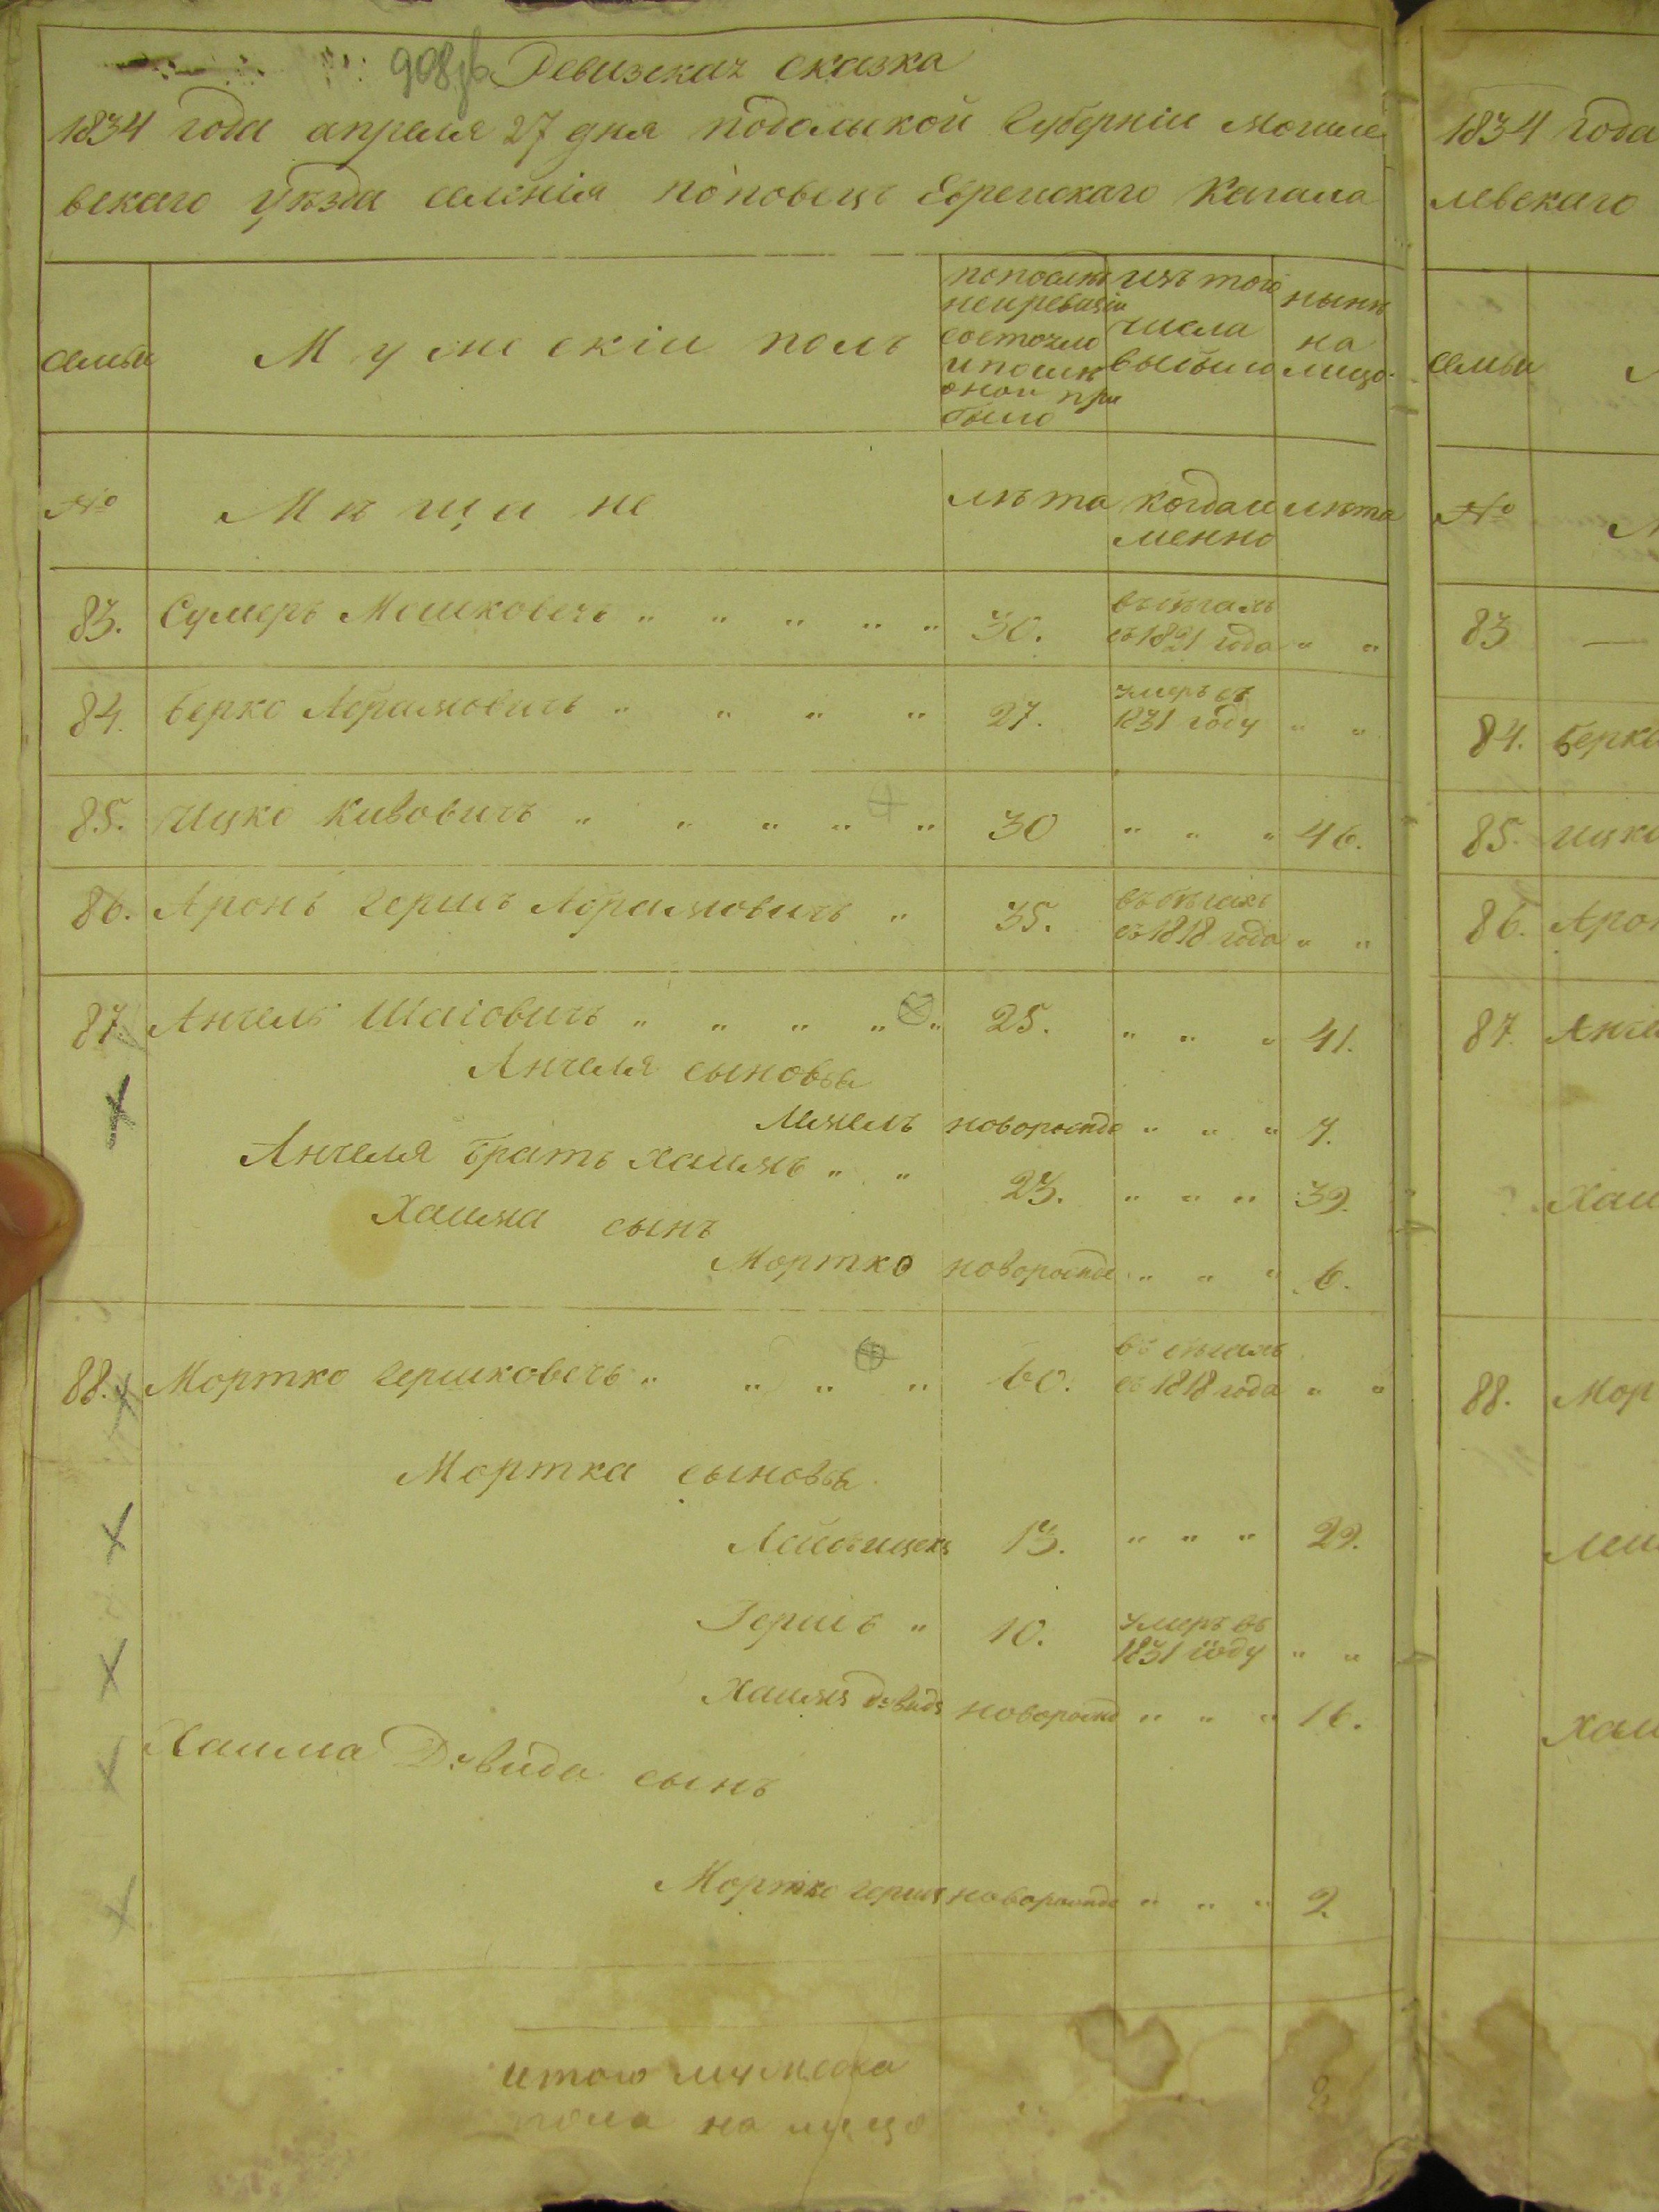 908
Ревизская сказка
1834 года апреля 27 дня подольской Губерніи могиле
вскаго уѣзда селенія поповецъ Еврейскаго Кагала
семьи
Мужескій полъ
по послѣд
ней ревизіи
состояло
и послѣ
оной при
было
изъ того
числа
выбыло
нынѣ
на
лицо
№
Мѣщане
лѣта
когда и
менно
лѣта
83. Сумеръ Мошковечъ " " " " " 30. въ бѣгахъ
съ 1821 года " "
84. Берко Абрамовичъ " " " " 27. умеръ въ
1831 году " "
85. Ицко Кивовичъ " " " " " 30 " " " 46.
86. Аронъ Гершъ Абрамовичъ " 35. въ бѣгахъ
съ 1818 года " "
87. Анчель Шаіовичъ " " " " " 25. " " " 41.
Анчеля сыновья
новорожде " " " 7.
Анчеля братъ Хаимъ " " 23. " " " 39.
Хаима сынъ
Мортко новорожде " " " 6.
88. Мортко Гершковечъ " " " " 60. въ бѣгахъ
съ 1818 года " "
Мортка сыновья
13. " " " 29.
Гершъ " 10. умеръ въ
1831 году " "
Хаимъ Давидъ новорожд " " " 16.
Хаима Давида сынъ
Мортко Гершъ новорожде " " " 2.
итого мужеска
пола на лицо " " 8
1834 года
левскаго
семьи
№
83 —
84. Берко
85. Ицко
86. Арон
87. Анче
Хаи
88. Мор
Лей
Хаи